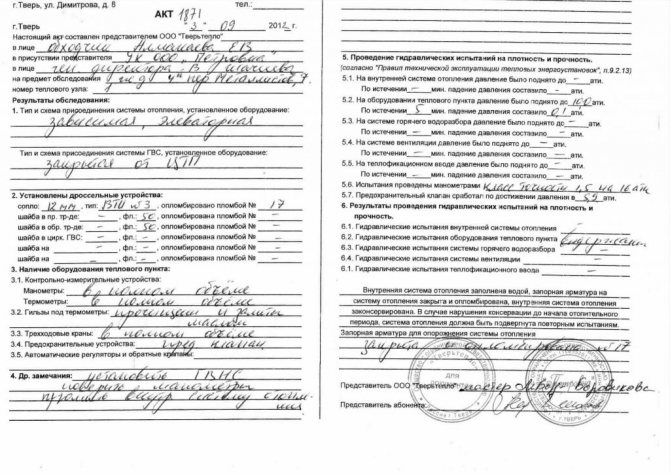 г.Тверь, ул. Димитрова, д. 8 тел.:
АКТ 1871
г.Тверь "3" 09 2012 г.
Настоящий акт составлен представителем ООО "Тверьтепло"
в лице обходчик Алмашева Е.В
в присутствии представителя УК ООО "Петровид"
в лице ген. директора
на предмет обследования 4й пер Металлистов, 7
номер теплового узла:
Результаты обследования:
1. Тип и схема присоединения системы отопления, установленное оборудование:
зависимая, элеваторная
Тип и схема присоединения системы ГВС, установленное оборудование:
закрытая от ЦТП
2. Установлены дроссельные устройства:
сопло: 12 мм, тип: ВТИ №3, опломбировано пломбой № 17
шайба в пр. тр-де: –, фл.: 50, опломбировано пломбой № –
шайба в обр. тр-де: –, фл.: 50, опломбировано пломбой № –
шайба в цирк. ГВС: –, фл.: –, опломбировано пломбой № –
шайба на –, фл.: –, опломбировано пломбой № –
шайба на –, фл.: –, опломбировано пломбой № –
3. Наличие оборудования теплового пункта:
3.1. Контрольно-измерительные устройства:
Манометры: в полном объёме
Термометры: в полном объёме
3.2. Гильзы под термометры: прочищены и залиты
маслом
3.3. Трехходовые краны: в полном объёме
3.4. Предохранительные устройства: пред клапан
3.5. Автоматические регуляторы и обратные клапаны:
4. Др. замечания: установить ТВНС
поверить манометры
промыть внутр систему отопле-
ния
5. Проведение гидравлических испытаний на плотность и прочность.
(согласно "Правил технической эксплуатации тепловых энергоустановок", п.9.2.13)
5.1. На внутренней системе отопления давление было поднято до – ати.
По истечении – мин. падение давления составило – ати.
5.2. На оборудовании теплового пункта давление было поднято до 10,0 ати.
По истечении 5 мин. падение давления составило 0,1 ати.
5.3. На системе горячего водоразбора давление было поднято до – ати.
По истечении – мин. падение давления составило – ати.
5.4. На системе вентиляции давление было поднято до – ати.
По истечении – мин. падение давления составило – ати.
5.5. На теплофикационном вводе давление было поднято до – ати.
По истечении – мин. падение давления составило – ати.
5.6. Испытания проведены манометрами класс точности 1,5 на 16 ати
5.7. Предохранительный клапан сработал по достижении давления в 5,9 ати.
6. Результаты проведения гидравлических испытаний на плотность и
прочность.
6.1. Гидравлические испытания внутренней системы отопления –
6.2. Гидравлические испытания оборудования теплового пункта выдержали
6.3. Гидравлические испытания системы горячего водоразбора –
6.4. Гидравлические испытания системы вентиляции –
6.1. Гидравлические испытания теплофикационного ввода –
Внутренняя система отопления заполнена водой, запорная арматура на
систему отопления закрыта и опломбирована, внутренняя система отопления
законсервирована. В случае нарушения консервации до начала отопительного
периода, система отопления должна быть подвергнута повторным испытаниям.
Запорная арматура для опорожнения системы отопления
закрыта и опломбирована №17
Представитель ООО "Тверьтепло" мастер
Представитель абонента: